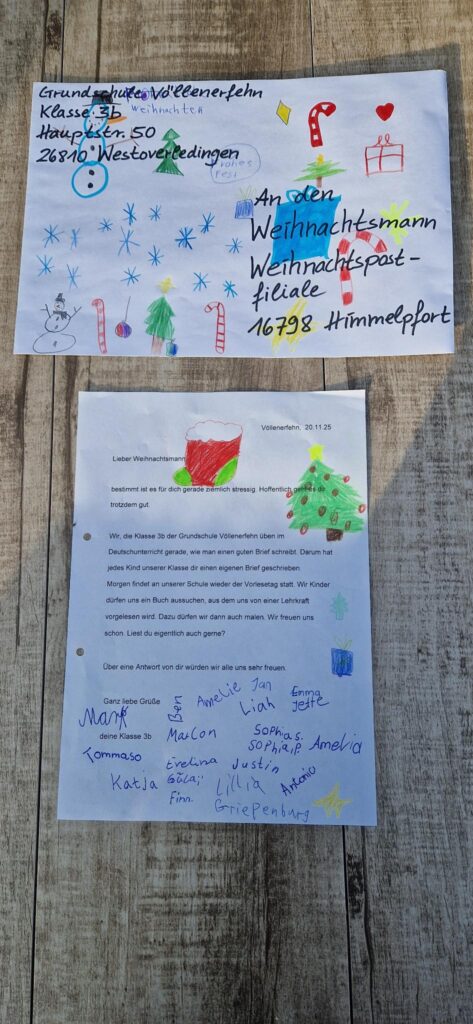 Grundschule Völlenerfehn
Klasse 3b
Hauptstr. 50
26810 Westoverledingen
Weihnachten
Frohes
Fest
An den
Weihnachtsmann
Weihnachtspost-
filiale
16798 Himmelpfort
Völlenerfehn, 20.11.25
Lieber Weihnachtsmann
bestimmt ist es für dich gerade ziemlich stressig. Hoffentlich geht es dir
trotzdem gut.
Wir, die Klasse 3b der Grundschule Völlenerfehn üben im
Deutschunterricht gerade, wie man einen guten Brief schreibt. Darum hat
jedes Kind unserer Klasse dir einen eigenen Brief geschrieben.
Morgen findet an unserer Schule wieder der Vorlesetag statt. Wir Kinder
dürfen uns ein Buch aussuchen, aus dem uns von einer Lehrkraft
vorgelesen wird. Dazu dürfen wir dann auch malen. Wir freuen uns
schon. Liest du eigentlich auch gerne?
Über eine Antwort von dir würden wir alle uns sehr freuen.
Ganz liebe Grüße
deine Klasse 3b
Mark
Ben
Amelie
Jan
Liah
Emma
Jette
Marlon
Sophia S.
Sophia P.
Amelia
Tommaso
Evelina
Justin
Katja
Finn
Lillia
Antonio
Griepenburg